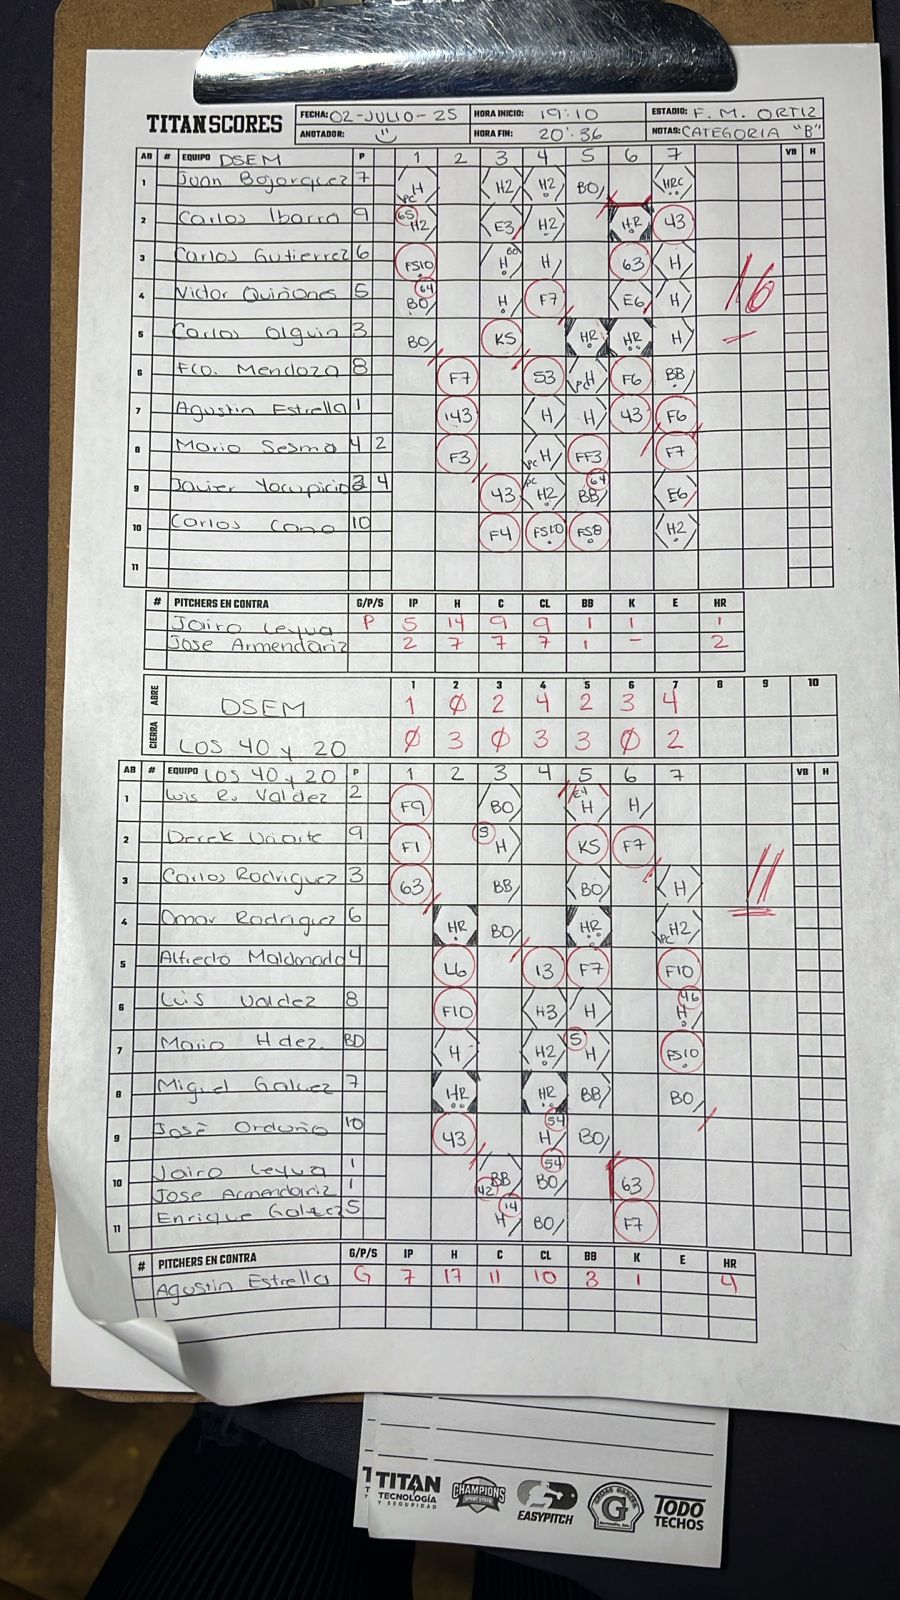 TITAN SCORES
FECHA: 02-JULIO-25 HORA INICIO: 19:10 ESTADIO: F. M. ORTIZ
ANOTADOR: HORA FIN: 20:36 NOTAS: CATEGORIA "B"
AB # EQUIPO DSEM P 1 2 3 4 5 6 7 VB H
1 Juan Bojorquez 7 H PC H2 H2 BO HRC
2 Carlos Ibarra 9 65 H2 E3 H2 HR 43
3 Carlos Gutierrez 6 FS10 H BO H 63 H
4 Victor Quiñones 5 64 BO H F7 E6 H
5 Carlos Olguin 3 BO K5 HR HR H
6 Fco. Mendoza 8 F7 53 PC H F6 BB
7 Agustin Estrella 1 143 H H 43 F6
8 Mario Sesma 4 2 F3 PC H FF3 F7
9 Javier Yocupicio 4 43 PC H2 64 BB E6
10 Carlos Cano 10 F4 FS10 FS8 H2
11
16
# PITCHERS EN CONTRA G/P/S IP H C CL BB K E HR
Jairo Leyua P 5 14 9 9 1 1 1
Jose Armendariz 2 7 7 7 1 - 2
1 2 3 4 5 6 7 8 9 10
ABRE DSEM 1 Ø 2 4 2 3 4
CIERRA LOS 40 y 20 Ø 3 Ø 3 3 Ø 2
AB # EQUIPO LOS 40 y 20 P 1 2 3 4 5 6 7 VB H
1 Luis R. Valdez 2 F9 BO E4 H H
2 Derek Uriarte 9 F1 5 H K5 F7
3 Carlos Rodriguez 3 63 BB BO H
4 Omar Rodriguez 6 HR BO HR H2 PC
5 Alfredo Maldonado 4 L6 13 F7 F10
6 Luis Valdez 8 F10 H3 H 46 H
7 Mario Hdez. BD H H2 5 H FS10
8 Miguel Galvez 7 HR HR BB BO
9 José Orduño 10 43 54 H BO
10 Jairo Leyua 1 BB 42 54 BO 63
Jose Armendariz 1
11 Enrique Galvez 5 14 H BO F7
11
# PITCHERS EN CONTRA G/P/S IP H C CL BB K E HR
Agustin Estrella G 7 17 11 10 3 1 4
TITAN
TECNOLOGÍA
Y SEGURIDAD
CHAMPIONS
EASYPITCH
G
TODO
TECHOS